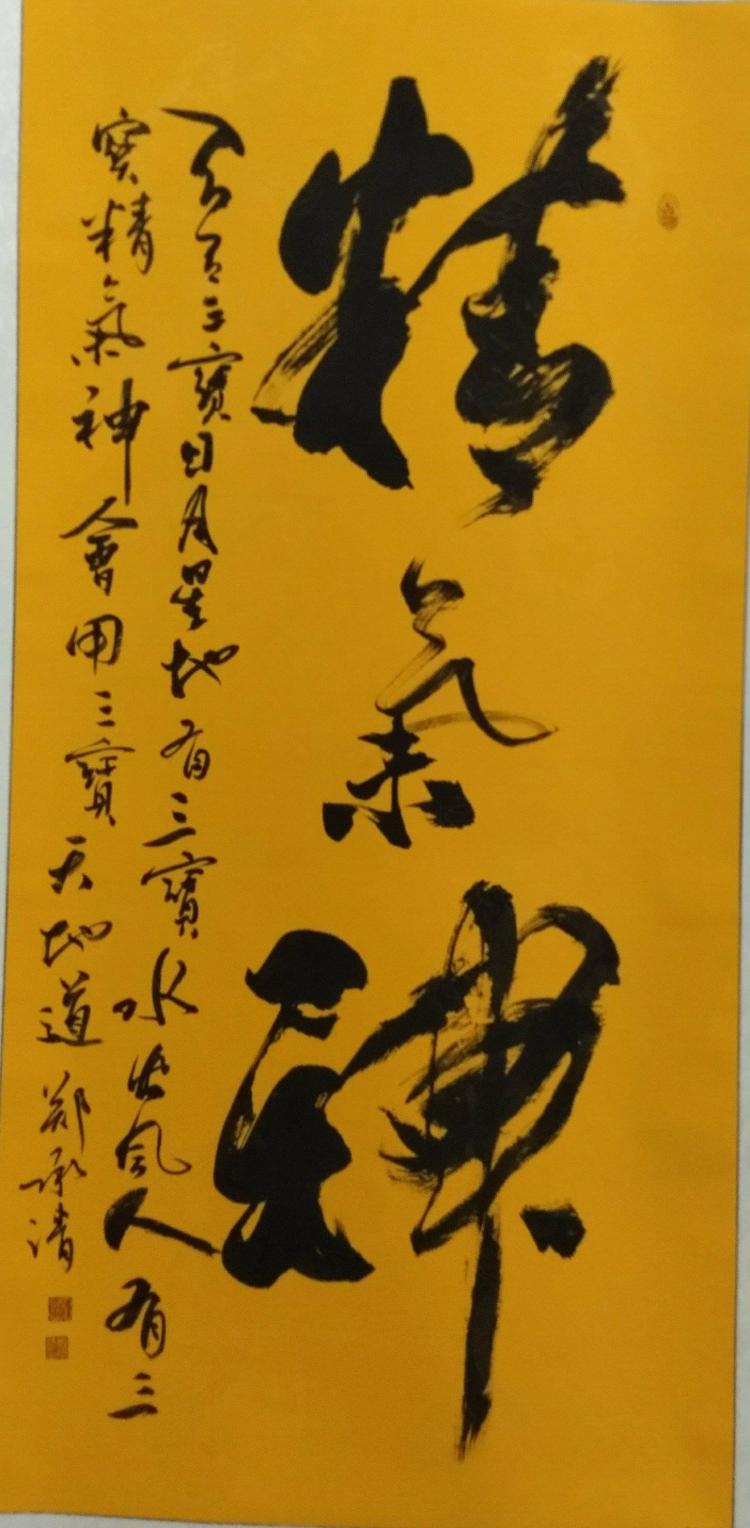 精氣神
天有三寶日月星地有三寶水火風人有三
寶精氣神會用三寶天地道 鄭承清